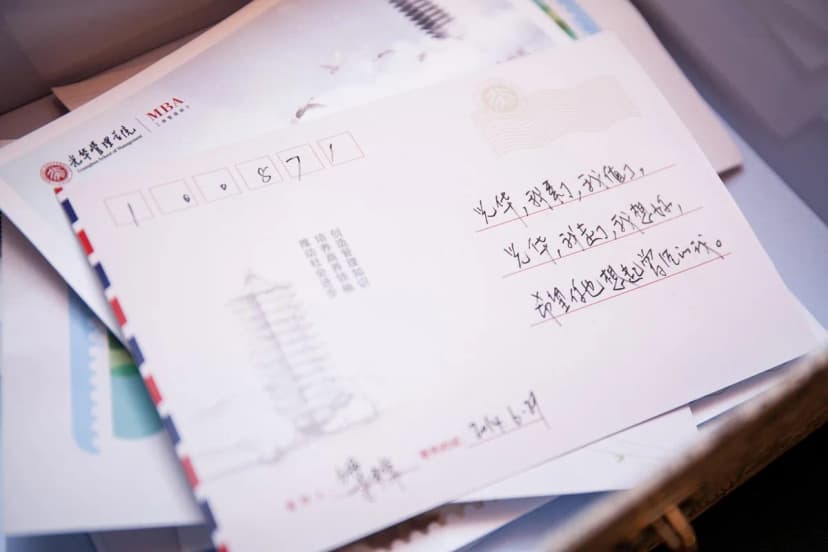 光华管理学院
MBA
Guanghua School of Management
100871
创造管理知识
培养商界领袖
推动社会进步
光华,我来了,我值了,
光华,我走了,我想你,
希望你也想起曾经的我。
2014.6.29